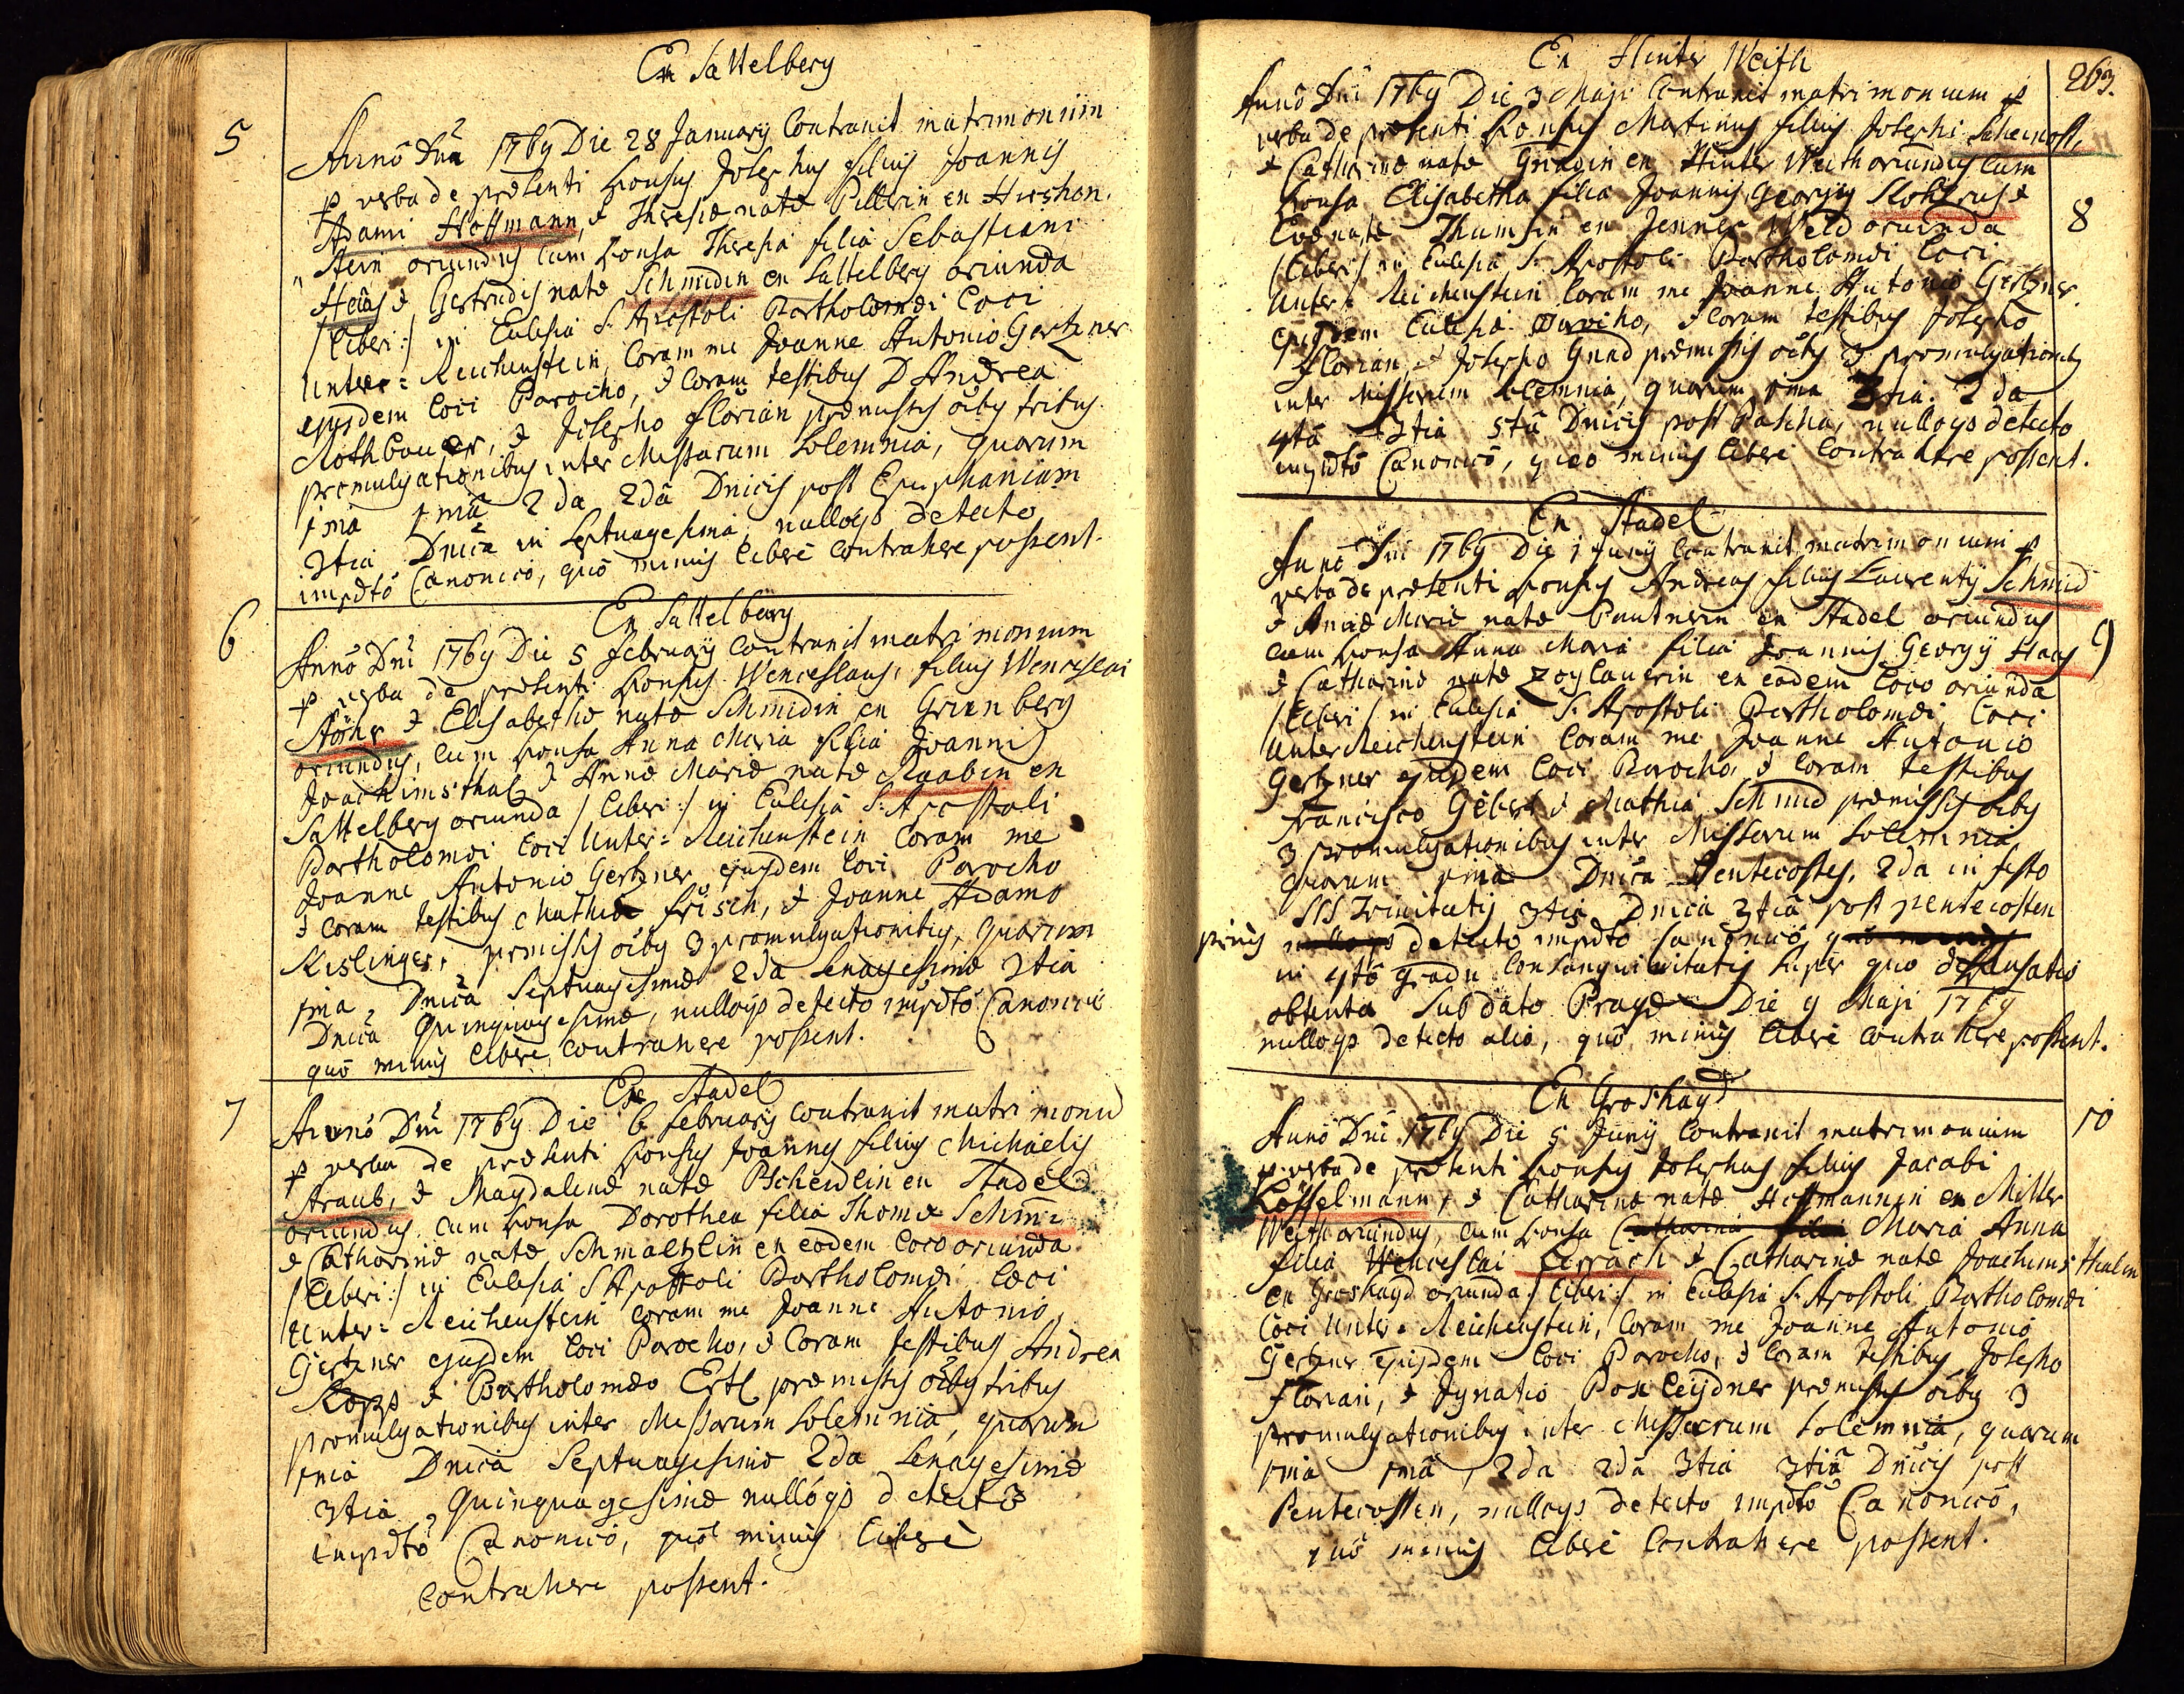 Ex Sattelberg
5
Anno Dni 1769 Die 28 January Contraxit matrimonium
p verba de præsenti sponsus Josephus filius Joannis
Adami Hoffmann, & Theresiæ natæ Pillerin ex Hirshon,
stein oriundus cum sponsa Theresia filia Sebastiani
Haas & Gertrudis natæ Schmidin ex Sattelberg oriunda
/Liberi:/ in Ecclesia S. Apostoli Bartholomæi Loci
Unter= Reichenstein, Coram me Joanne Antonio Gertzner
ejusdem Loci Parocho, & Coram testibus D Andrea
Rothbauer, & Josepho Florian præmissis oibus tribus
promulgationibus inter Missarum Solemnia, quarum
1ma 1mâ 2da 2dâ Dnicis post Epiphaniam
3tia Dnica in Septuagesima, nulloqs detecto
impdto Canonico, quo minus Liberè Contrahere possent.
6
Ex Sattelberg
Anno Dni 1769 Die 5 February Contraxit matrimonium
p verba de præsenti sponsus Wenceslaus, filius Wenceslai
Stöhr & Elisabethæ natæ Schmidin ex Grienberg
oriundus, Cum sponsa Anna Maria filia Joannis
Joachimsthal & Annæ Mariæ natæ Raabin ex
Sattelberg oriunda /Liberi:/ in Ecclesia S: Apostoli
Bartholomæi Loci Unter= Reichenstein Coram me
Joanne Antonio Gertzner ejusdem Loci Parocho
& Coram testibus Mathia Frisch, & Joanne Adamo
Kislinger, præmissis oibus 3 promulgationibus, quarum
1ma Dnica Septuagesimæ 2da Sexagesimæ 3tia
Dnica Quinquagesimæ, nulloqs detecto impdto Canonico
quo minus Liberè Contrahere possent.
7
Ex Stadel
Anno Dni 1769 Die 6 February Contraxit matrimoniu
p verba de præsenti sponsus Joannes filius Michaelis
Straub, & Magdalenæ natæ Pscheidlin ex Stadel
oriundus, cum sponsa Dorothea filia Thomæ Schmi
& Catharinæ natæ Schmaltzlin ex eodem Loco oriunda
/Liberi:/ in Ecclesia S Apostoli Bartholomæi Loci
Unter= Reichenstein Coram me Joanne Antonio
Gertzner ejusdem Loci Parocho, & Coram testibus Andrea
Kopp & Bartholomæo Ertl præmissis oibus tribus
promulgationibus inter Missarum Solemnia, quarum
1ma Dnica Septuagesimæ 2da Sexagesimæ
3tia Quinquagesimæ nulloqs detecto
impdto Canonico, quo minus Liberè
Contrahere possent.
263.
Ex Hinter Weith
Anno Dni 1769 Die 3 Maji Contraxit matrimonium p
verba de præsenti sponsus Martinus filius Josephi Scheinost,
& Catharinæ natæ Gnadin ex Hinter Weith oriundus cum
sponsa Elisabetha filia Joannis Georgij &
8
Evæ natæ Thumsin ex Jenner Weld oriunda
/Liberi/ in Ecclesia S. Apostoli Bartholomæi Loci
Unter= Reichenstein Coram me Joanne Antonio Gertzner
ejusdem Ecclesiæ Parocho, & Coram testibus Josepho
Florian, & Josepho Gnad præmissis oibus 3 promulgationibus
inter Missarum Solemnia, quarum 1ma 3tia 2da
4tâ 3tia 5tâ Dnicis post Pascha, nulloqs detecto
impdto Canonico, quo minus Liberè Contrahere possent.
Ex Stadel
Anno Dni 1769 Die 1 Juny Contraxit matrimonium p
verba de præsenti sponsus Andreas filius Laurentij Schmid
& Annæ Mariæ natæ Pautnerin ex Stadel oriundus
cum sponsa Anna Maria filia Joannis Georgij Haas
9
& Catharinæ natæ Zoglauerin ex eodem Loco oriunda
/Liberi/ in Ecclesia S. Apostoli Bartholomæi Loci
Unter Reichenstein Coram me Joanne Antonio
Gertzner ejusdem Loci Parocho, & Coram testibus
Francisco Gebert & Mathia Schmid præmissis oibus
3 promulgationibus inter Missarum Solemnia
quarum 1ma Dnica Pentecostes, 2da in festo
SSS Trinitatis 3tia Dnica 3tiâ post pentecosten
prius nulloqs detecto impdto Canonico quo minus
in 4to gradu Consanguinitatis super quo dispensatio
obtenta Sub dato Pragæ Die 9 Maji 1769
nulloqs detecto alio, quo minus Liberè Contrahere possent.
Ex Groshayd
10
Anno Dni 1769 Die 5 Juny Contraxit matrimonium
p verba de præsenti sponsus Josephus filius Jacobi
Kösselmann, & Catharinæ natæ Hoffmannin ex Mitter
Weith oriundus, cum sponsa Catharina filia Maria Anna
filia Wenceslai & Catharinæ natæ Joachimsthalin
ex Groshayd oriunda /Liberi:/ in Ecclesia S. Apostoli Bartholomæi
Loci Unter= Reichenstein, Coram me Joanne Antonio
Gertzner ejusdem Loci Parocho, & Coram testibus Josepho
Florian, & Ignatio Poxleydner præmissis oibus 3
promulgationibus inter Missarum Solemnia, quarum
1ma 1mâ, 2da 2dâ 3tia 3tiâ Dnicis post
Pentecosten, nulloqs detecto impdto Canonico,
quo minus Liberè Contrahere possent.